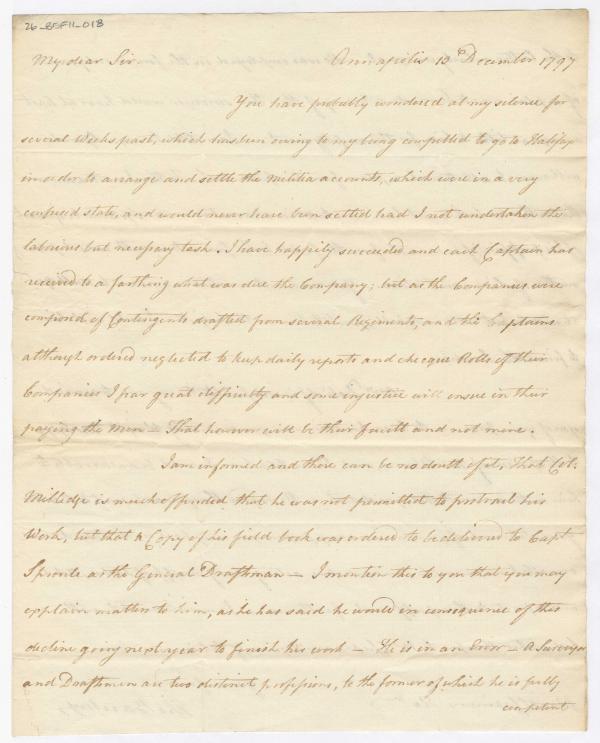 26_BSF11_018
My dear Sir Annapolis 10th December 1797
You have probably wondered at my silence for
several Weeks past, which has been owing to my being compelled to go to Halifax
in order to arrange and settle the Militia accounts, which were in a very
confused state, and would never have been settled had I not undertaken the
laborious but necessary task. I have happily succeeded and each Captain has
received to a farthing what was due the Company; but as the Companies were
composed of Contingents drafted from several Regiments, and the Captains
although ordered neglected to keep daily reports and checque Rolls of their
Companies I fear great difficulty and some injustice will ensue in their
paying the Men – That however will be their fault and not mine.
I am informed and there can be no doubt of it, That Col:
Millidge is much offended that he was not permitted to protract his
Work, but that A Copy of his field book was ordered to be delivered to Capt
Sproule as the General Draftsman – I mention this to you that you may
explain matters to him, as he has said he would in consequence of this
decline going next year to finish his work – He is in an Error – A Surveyor
and Draftsmen are two distinct professions, to the former of which he is fully
competent